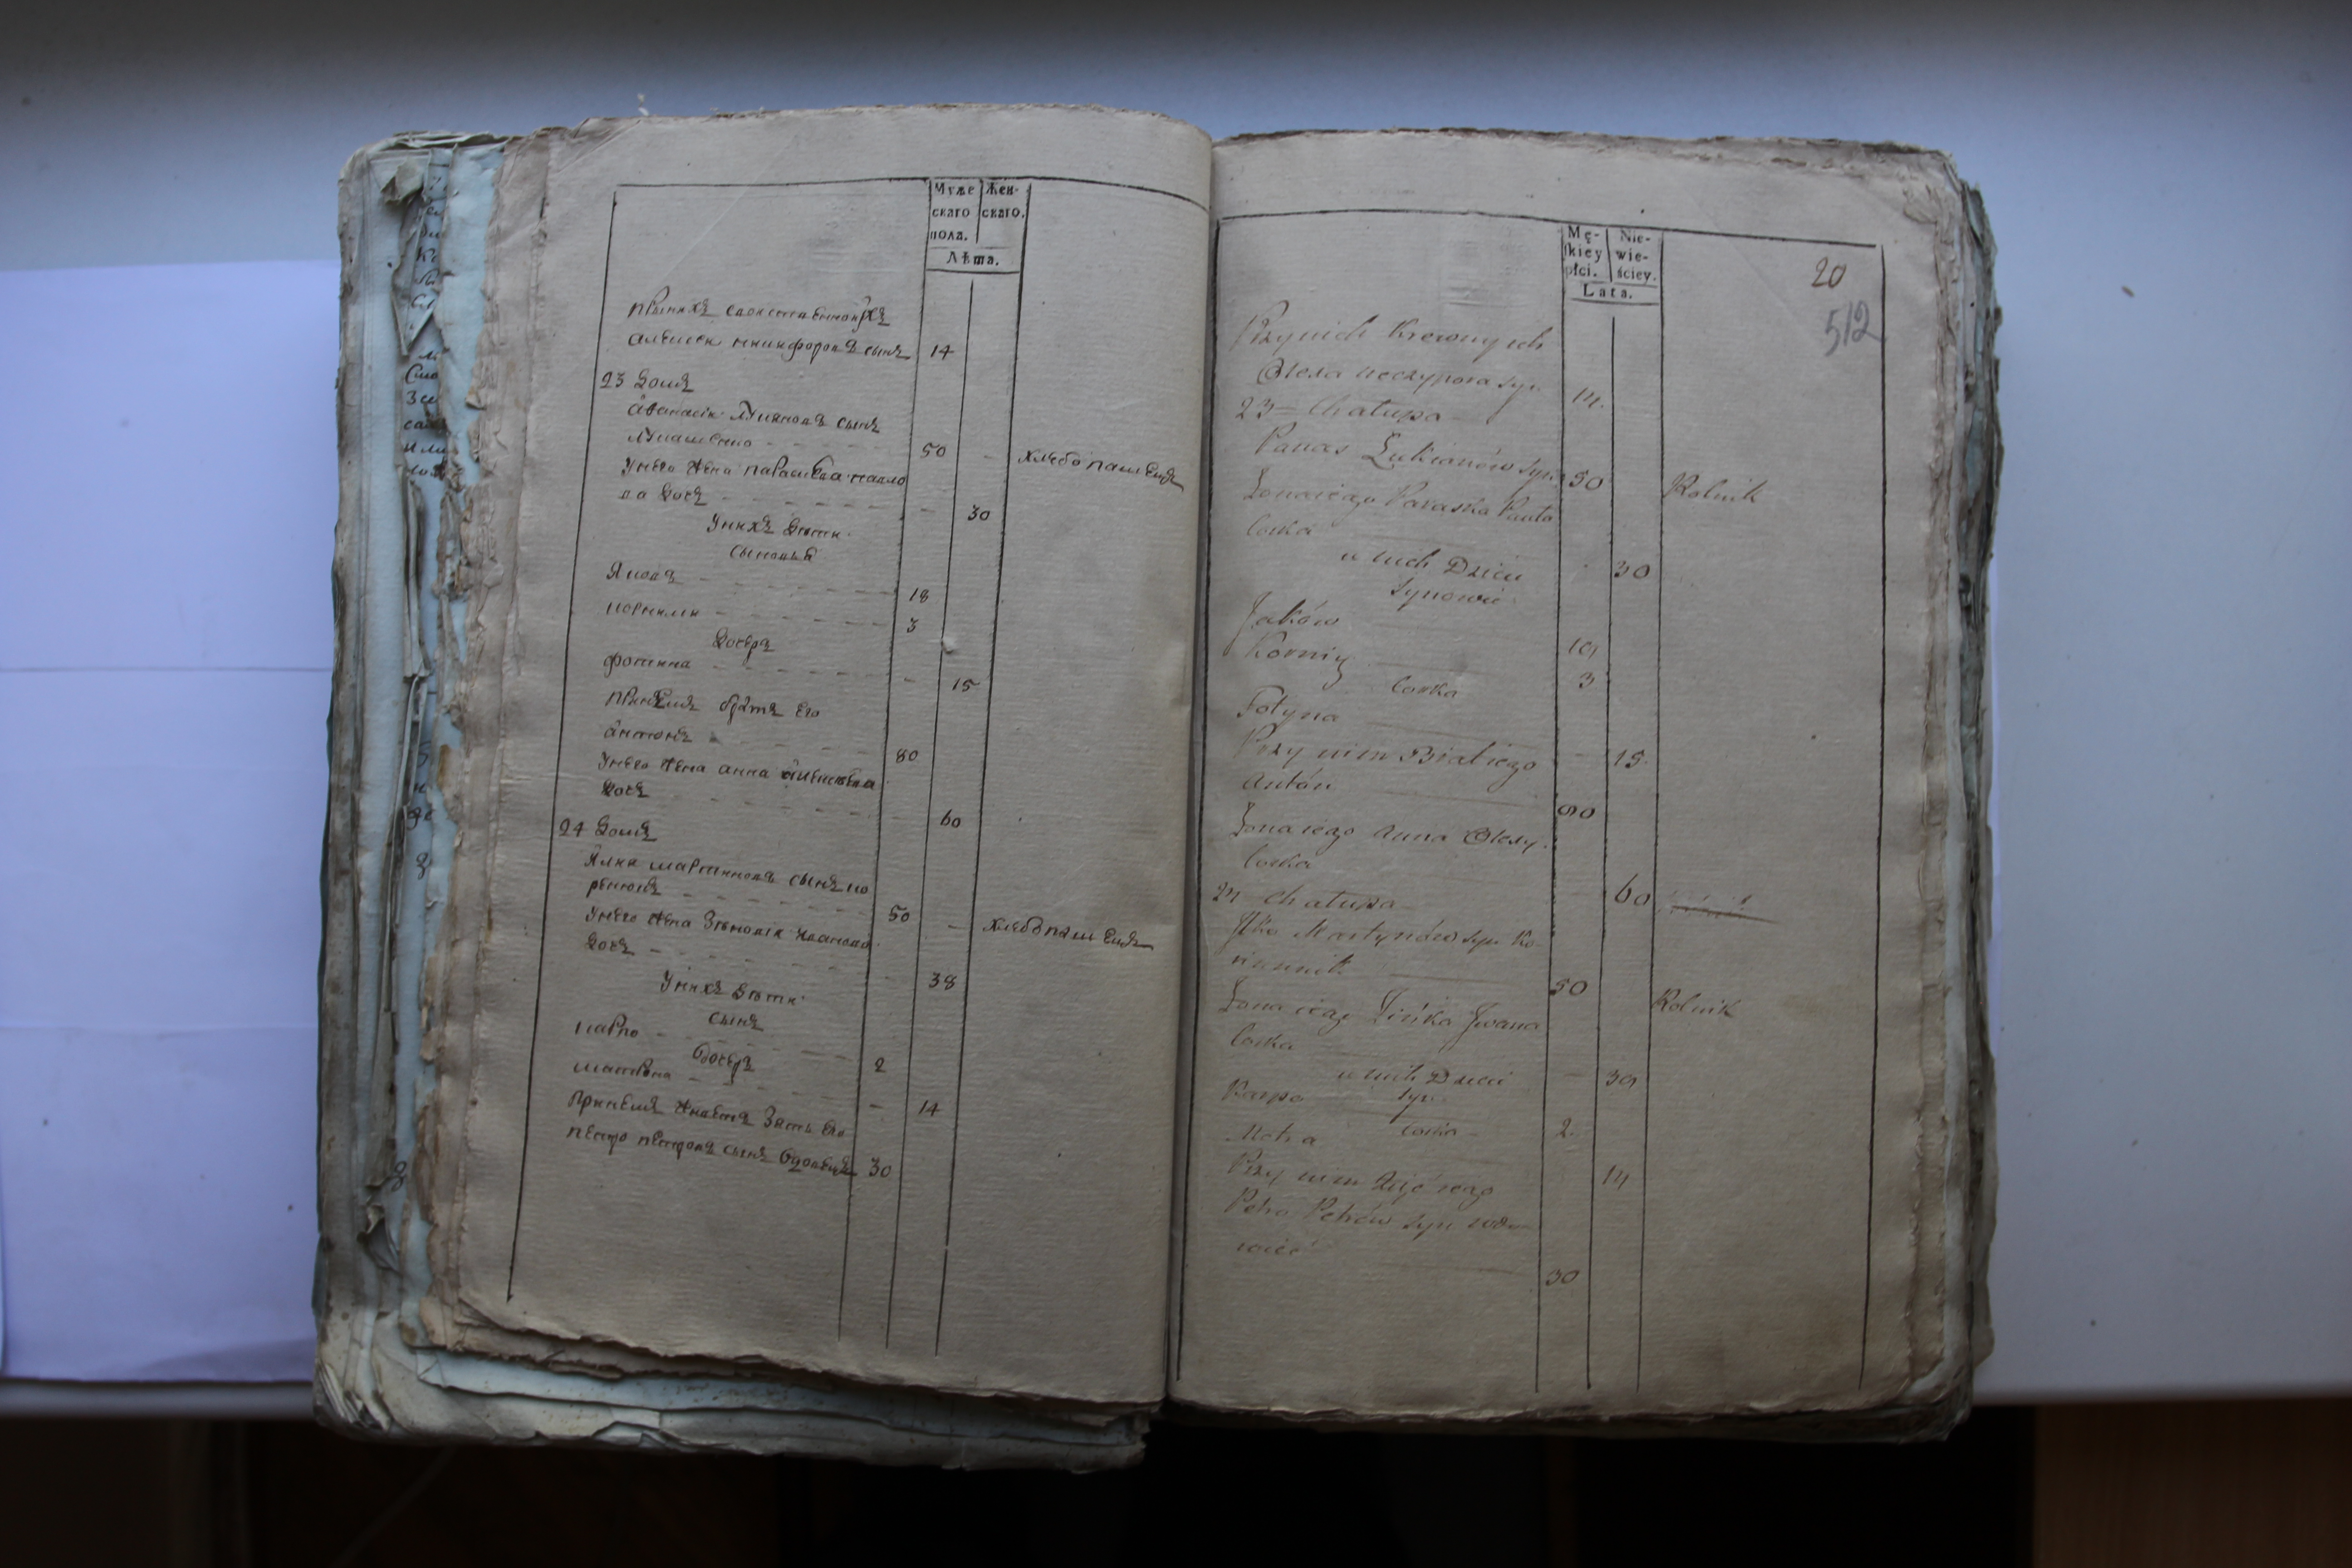 Муже
скаго
пола.
Жен-
скаго.
Лѣта.
принихъ свойственнойхъ
алексеи никифоровъ сынъ 14
23 домъ
афанасіи лукяновъ сынъ
лукашенко 50 хлебопашецъ
унего жена параскева павло
ва дочь 30
унихъ дѣти
сыновья
яковъ 18
корнили 3
дочерь
фотина 15
принемъ братъ его
антонъ 80
унего жена анна алексѣева
дочь 60
24 домъ
Илия мартиновъ сынъ ко
50 хлебопашецъ
унего жена Зѣновія иванова
дочь 38
унихъ дѣти
сынъ
карпо 2
дочерь
матрона 14
принемъ живетъ Зять его
петро петровъ сынъ вдовецъ 30
Mę-
skiey
płci.
Nie-
wie-
ściey.
Lata.
20
512
Przynich Krewnych
Olexa Neczypora syn 14
23 Chałupa
Panas Lukianów syn 50 Rolnik
Żona iego Paraska Pawła
Corka 30
u nich Dzieci
Synowie
Jaków 18
Korniy 3
Corka
Fotyna 15
Przy nim Brat iego
Antón 80
Żona iego Anna Olexy
Corka 60
24 Chałupa
Ilko Martynów syn Ko-
50 Rolnik
Żona iego Zińka Jwana
Corka 38
u nich Dzieci
Syn
Karpo 2
Corka
Motra 14
Przy nim Zięć iego
Petro Petrów syn wdo-
wiec 30